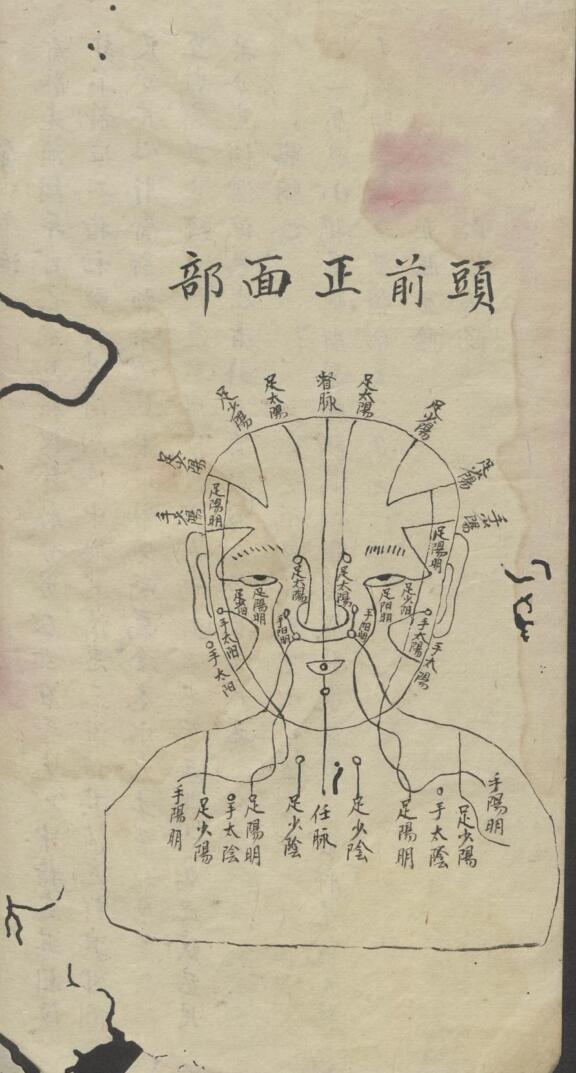 頭前正面部
足少陽
足太陽
督脉
足太陽
足少陽
足少陽
足少陽
手少陽
手少陽
足陽明
足陽明
足太陽
足太陽
足陽明
足阳明
足少阳
手阳明
手阳明
手太阳
手太陽
手太阳
手太陽
手陽明
足少陽
手太陰
足陽明
足少陰
任脉
足少陰
足陽明
手太陰
足少陽
手陽明